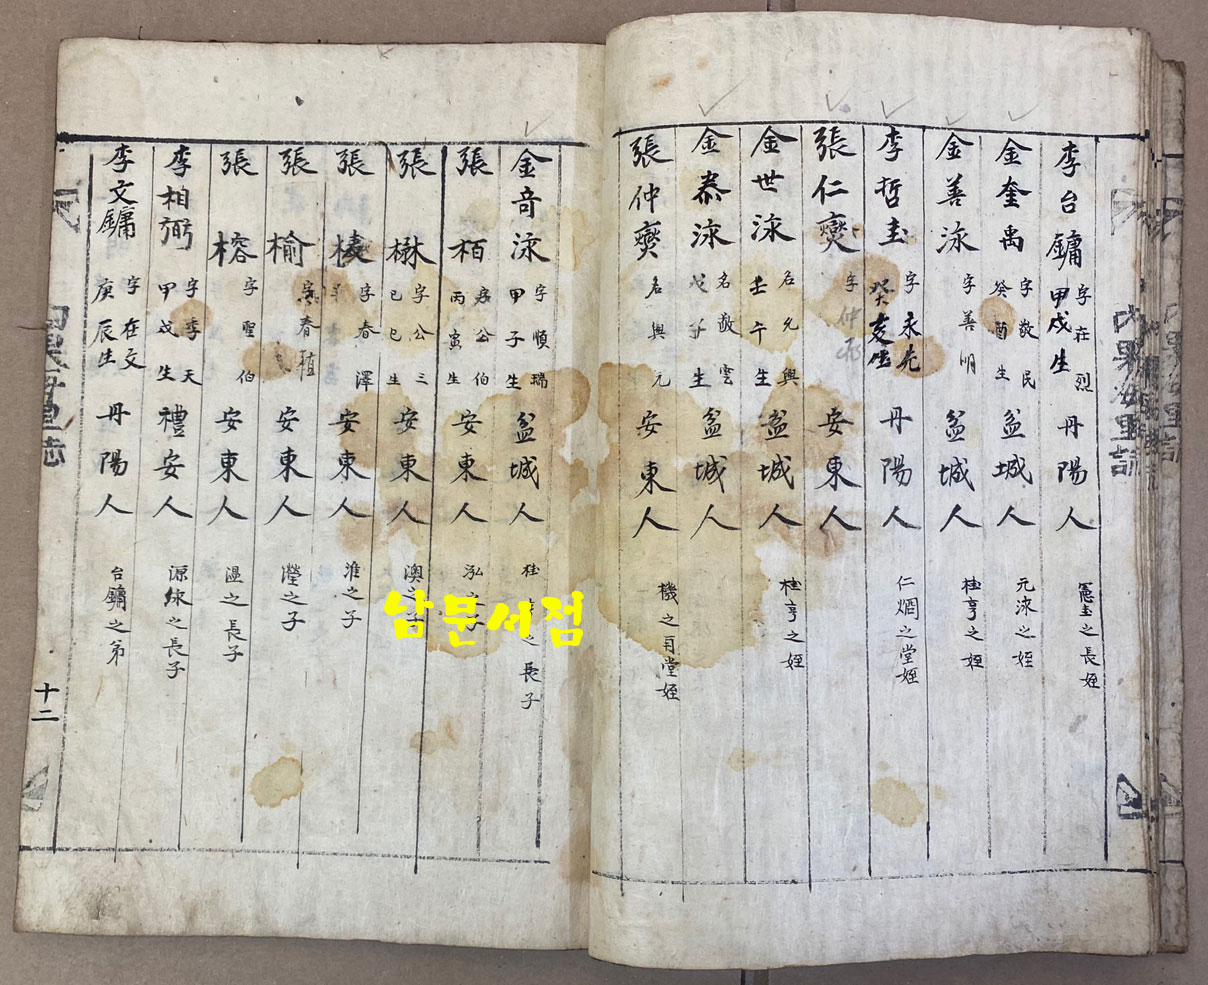 李台鏞 字在烈 甲戌生 丹陽人 憲圭之長姪
金奎禹 字敬民 癸酉生 盆城人 元泳之姪
金善泳 字善明 盆城人 桂亨之姪
李哲圭 字永先 癸亥生 丹陽人 仁烱之堂姪
張仁燮 字仲 安東人
金世泳 名允興 壬午生 盆城人 桂亨之姪
金泰泳 名敬雲 戊子生 盆城人
張仲燮 名興元 安東人 機之再堂姪
金奇泳 字順瑞 甲子生 盆城人 桂 之長子
張栢 字公伯 丙寅生 安東人 泓之子
張楙 字公三 己巳生 安東人 澳之子
張 字春澤 安東人 淮之子
張楡 字春植 安東人 瀅之子
張榕 字聖伯 安東人 溫之長子
李相弼 字季天 甲戌生 禮安人 源綠之長子
李文鏞 字在文 庚辰生 丹陽人 台鏞之弟
十二
남문서점